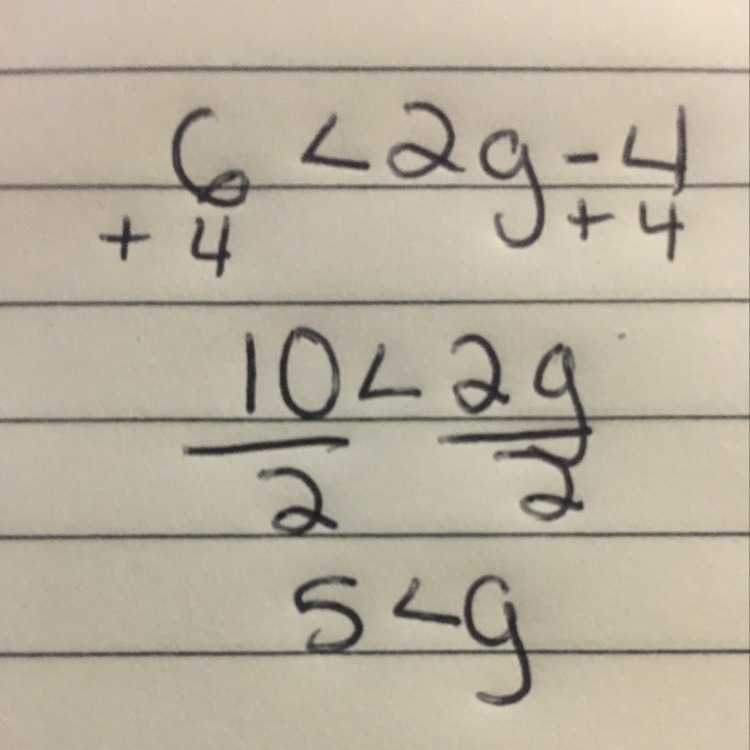 6 < 2g - 4
+ 4 + 4
10 < 2g
2 2
5 < g